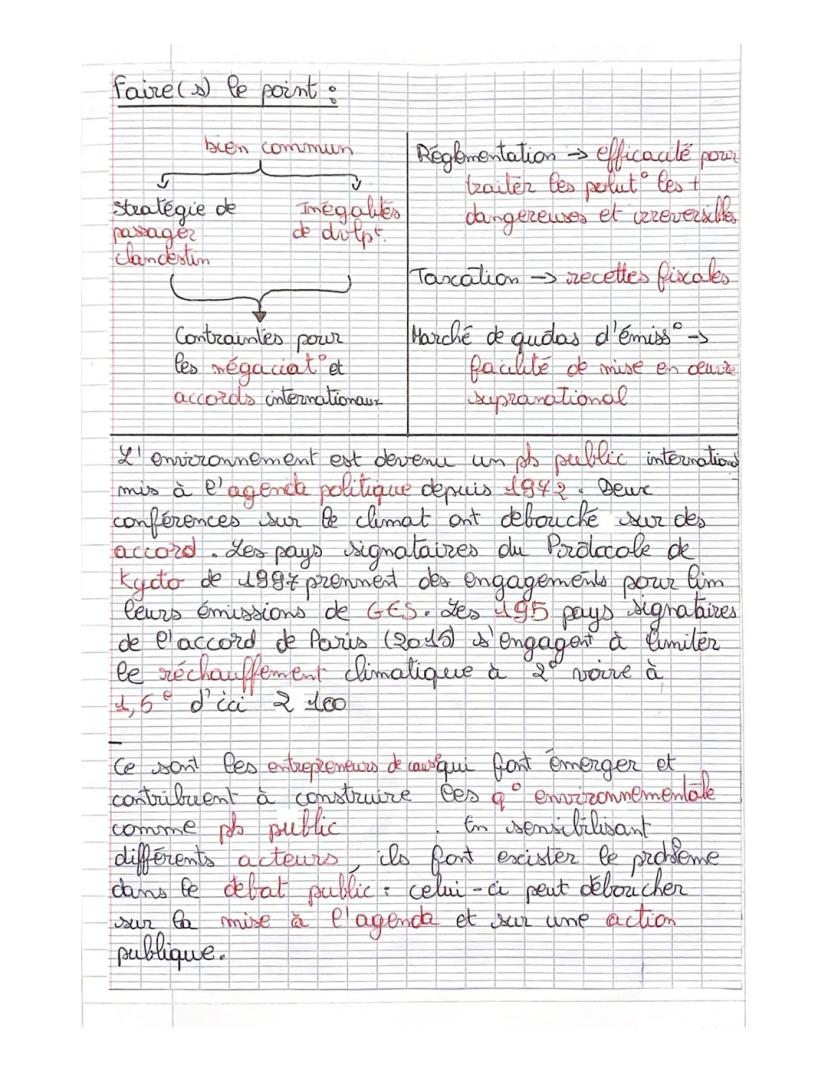 Faire(s) le point :
bien commun
Stratégie de
passager
clandestin
Inégalités
de dvlpt
Contraintes pour
les négociat° et
accords internationaux
Réglementation → efficacité pour
traiter les pollut° les +
dangereuses et irreversibles
Taxation → recettes fiscales
Marché de quotas d'émiss° →
facilité de mise en oeuvre
supranational
L'environnement est devenu un pb public international
mis à l'agenda politique depuis 1972. Deux
conférences sur le climat ont debouché sur des
accord. Les pays signataires du Protocole de
Kyoto de 1997 prennent des engagements pour lim
leurs émissions de GES. Les 195 pays signataires
de l'accord de Paris (2015) s'engagent à limiter
le réchauffement climatique à 2° voire à
1,5° d'ici 2 100
Ce sont les entrepreneurs de cause qui font émerger et
contribuent à construire les q° environnementale
comme pb public . En sensibilisant
différents acteurs, ils font exister le problème
dans le debat public : celui-ci peut déboucher
sur la mise à l'agenda et sur une action
publique.